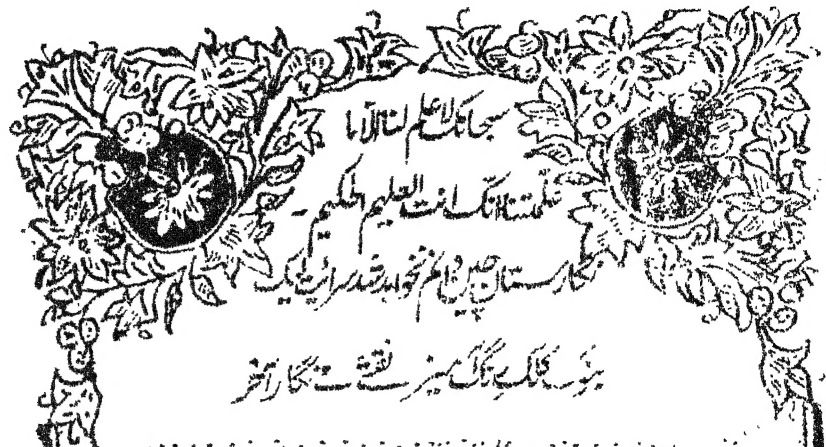 سبحانک لا علم لنا الا ما
علمتنا انک انت العلیم الحکیم۔
نگارستان چین دانم نخواهد شد سرایت لیک
بنوک کلک رنگ آمیز نقشے نگار آخر